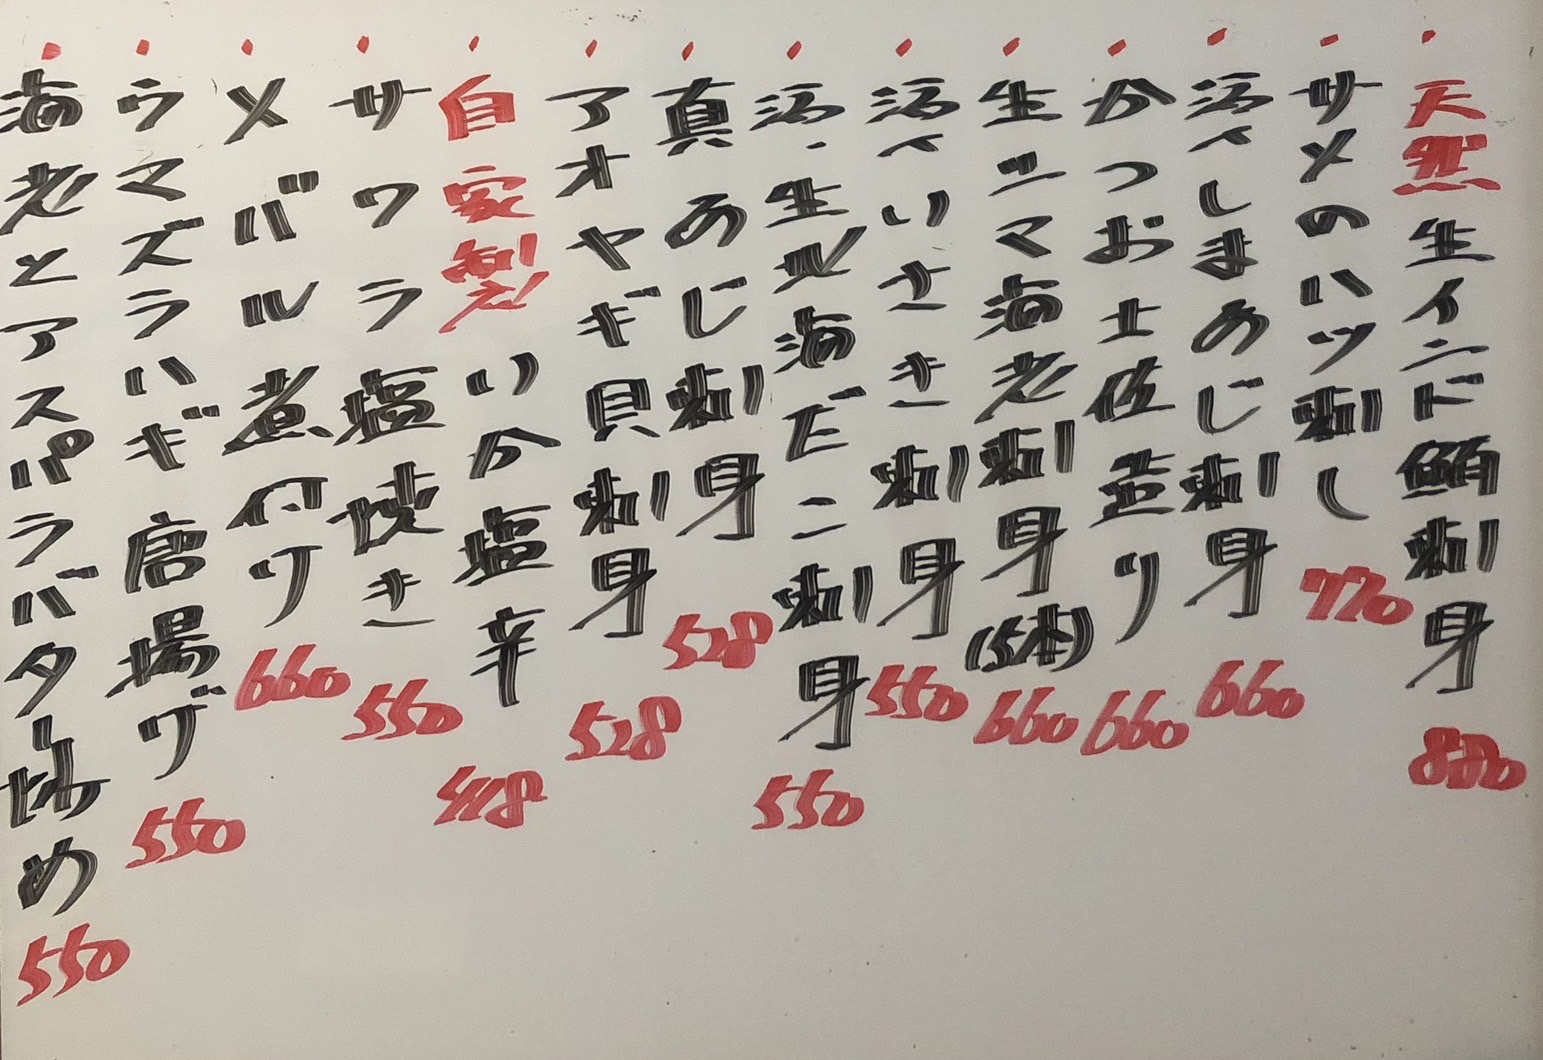 天然生インド鮪刺身 880
サメのハツ刺し 770
活〆しまあじ刺身 660
かつお土佐造り 660
生シマ海老刺身(5本) 660
活〆いさき刺身 550
活・生北海だこ刺身 550
真あじ刺身 528
アオヤギ貝刺身 528
自家製いか塩辛 418
サワラ塩焼き 550
メバル煮付け 660
ウマズラハギ唐揚げ 550
海老とアスパラバター炒め 550